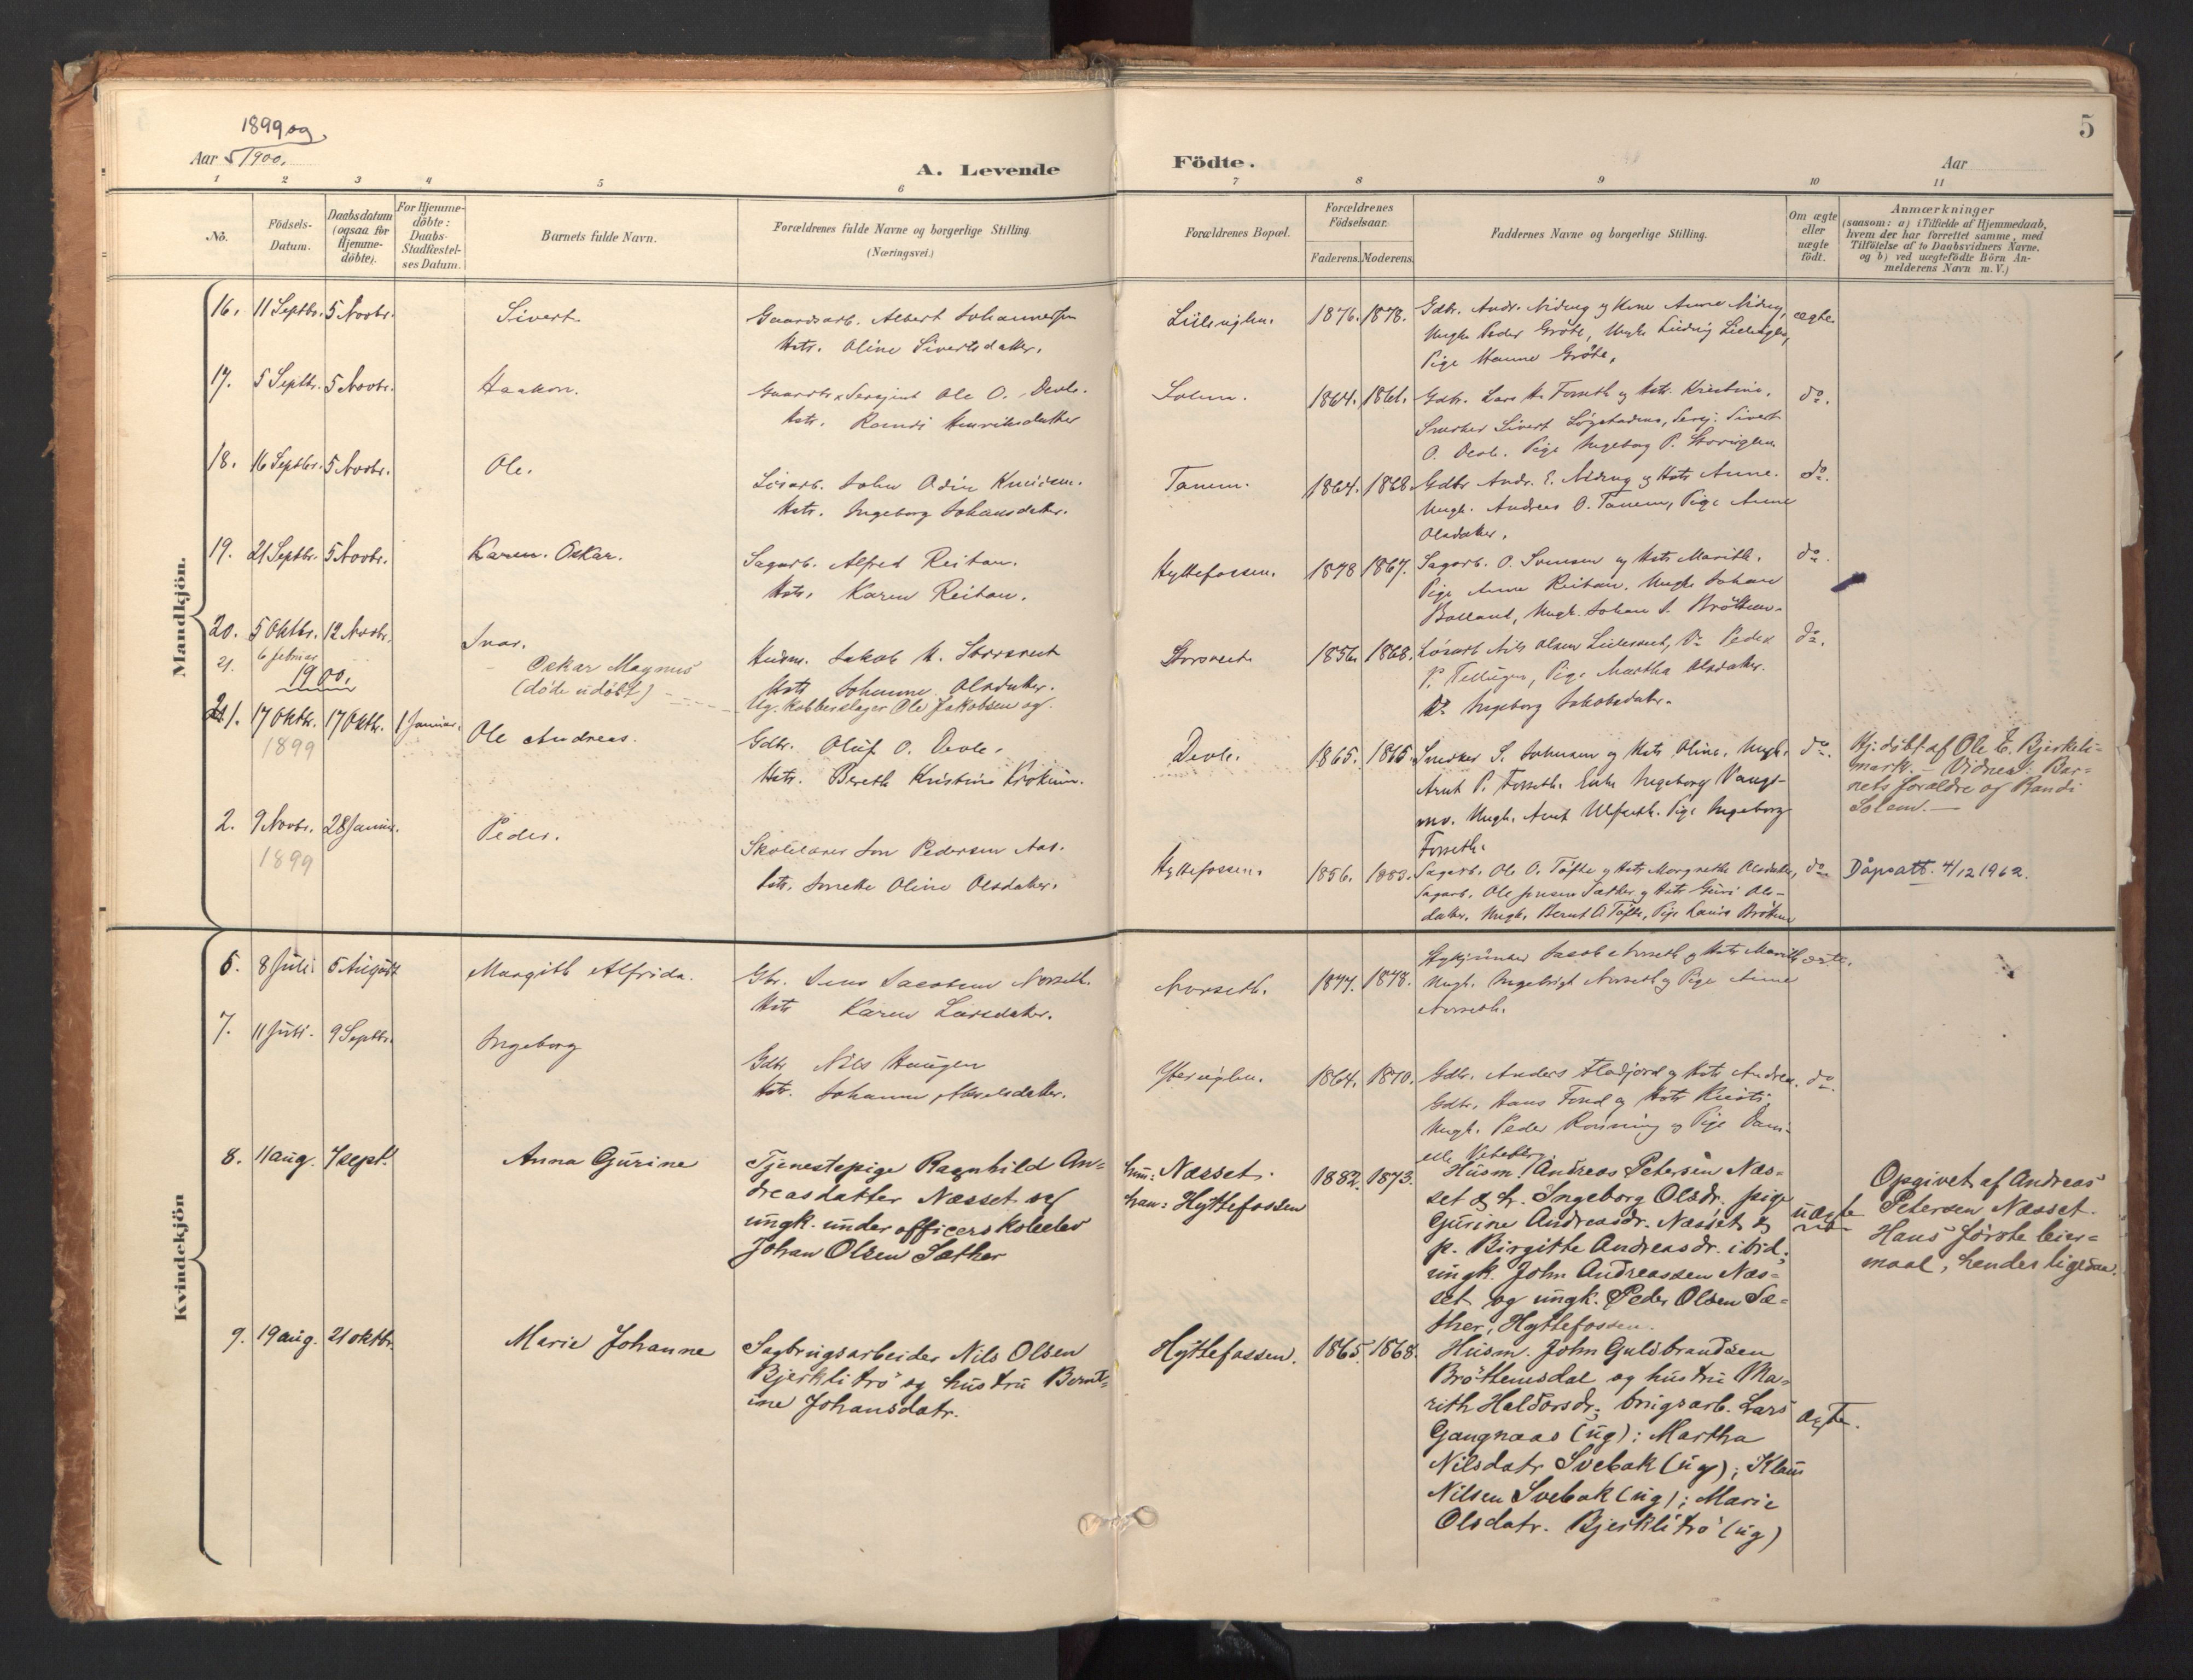 1899 og
Aar 1900.
A. Levende
Födte.
Aar
5
1 2 3 4 5 6 7 8 9 10 11
No.
Födsels-Datum.
Daabsdatum (ogsaa for Hjemme-döbte).
For Hjemme-döbte: Daabs-Stadfæstel-ses Datum.
Barnets fulde Navn.
Forældrenes fulde Navne og borgerlige Stilling.
(Næringsvei.)
Forældrenes Bopæl.
Forældrenes Födselsaar.
Faderens. Moderens.
Faddernes Navne og borgerlige Stilling.
Om ægte eller uægte födt.
Anmærkninger
(saasom: a) i Tilfælde af Hjemmedaab, hvem der har forrettet samme, med Tilföielse af to Daabsvidners Navne. og b) ved uægtefödte Börn An-melderens Navn m. V.)
Mandkjön.
16. 11 Septbr. 5 Novbr. Sivert
Gaardsarb. Albert Johannessen
Hstr. Oline Sivertsdatter.
1876. 1878.
Pige Hanne Gröte.
ægte
17. 5 Septbr. 5 Novbr. Haakon.
Sersjint Ole O. Devle.
Hstr. Randi Henriksdatter
Solem. 1864. 1861.
Gdbr. Lars H. Forseth og Hstr. Kristine.
O. Devle. Pige Ingeborg P.
do.
18. 16 Septbr. 5 Novbr. Ole.
Lösarb. John Odin Knudsen.
Hstr. Ingeborg Johansdatter.
Tanem. 1864. 1868.
Gdbr Andr. E. Nideng og Hstr Anne.
Ungk. Andreas O. Tanem, Pige Anne
Olsdatter.
do.
19. 21 Septbr. 5 Novbr. Karen. Oskar.
Sagarb. Alfred Reitan.
Hstr. Karen Reitan.
Hyttefossen. 1878 1867.
Sagarb. O. Svensen og Hstr Marith.
Pige Anne Reitan. Ungk. Johan
do.
20. 5 Oktbr. 12 Novbr. Ivar.
Husm. Jakob H. Storsvet
Hstr Johanna Olsdatter.
Storsvet. 1856. 1868.
Pige Martha Olsdatter.
Do Ingeborg Jakobsdatter.
do.
21. 6 februar Oskar Magnus
(döde udöbt)
Ug. Kobberslager Ole Jakobsen og
1900.
1. 17 Oktbr. 1899 17 Oktbr. 1 Januar. Ole Andreas.
Gdbr. Oluf O. Devle.
Hstr. Bereth Kristine Krokum.
Devle. 1865. 1865.
Snedker S. Johnsen og Hstr Oline. Ungk.
Arnt P. Forseth. Enke Ingeborg Vangs-
mo. Ungk. Arnt Ulfseth. Pige Ingeborg
Forseth.
do.
Hj. döbt af Ole E. Bjerkeli-
mark. – Vidner: Bar-
nets forældre og Randi
Solem. –
2. 9 Novbr. 1899 28 Januar. Peder.
Skolelærer Jon Pedersen Aas.
Hstr. Jonette Oline Olsdatter.
Hyttefossen. 1856. 1883.
Sagarb. Ole O. Töfte og Hstr Margrethe Olsdatter,
Sagarb. Ole Jensen Sæther og Hstr Guri Ols-
datter. Ungk. Bernt O Töfte, Pige Laura Bröttem
do.
Dåpsatt. 4/12 1962.
Kvindekjön
6. 8 Juli 5 August Margith Alfrida.
Gbr. Jens Jacobsen Norseth.
Hstr Karen Larsdatter.
Norseth. 1877. 1878.
Jacob Norseth og Hstr Marith
Ungk. Ingebrigt Norseth og Pige Anne
Norseth.
ægte.
7. 11 Juli. 9 Septbr. Ingeborg
Gdbr Nils Haugen
Hstr. Johanna
1864. 1870.
Gdbr. Anders Fladjord og Hstr Andrea.
Gdbr. Hans Fond og Hstr Kirsti,
Ungk. Peder Rönning og Pige
do.
8. 11 aug. 7 sept. Anna Gurine
Tjenestepige Ragnhild An-
dreasdatter Næsset og
ungk. underofficerskoleelev
Johan Olsen Sæther
hun: Næsset.
han: Hyttefossen
1882. 1873.
Husm. Andreas Petersen Næs-
set & h. Ingeborg Olsdr. pige
Gurine Andreasdr. Næsset &
p. Birgitte Andreasdr. ibid;
ungk. John Andreassen Næs-
set og ungk. Peder Olsen Sæ-
ther, Hyttefossen.
uægte
Opgivet af Andreas
Petersen Næsset.
Hans förste leier-
maal, hendes ligesaa.
9. 19 aug. 21 oktbr. Marie Johanne
Sagbrugsarbeider Nils Olsen
Bjerklitrö og hustru Bernt-
ine Johansdatr.
Hyttefossen. 1865. 1868.
Husm. John Guldbrandsen
Bröttemsdal og hustru Ma-
rith Haldorsdr; brugsarb. Lars
Gangnæas (ug): Martha
Nilsdatr Svebak (ug); Klaus
Nilsen Svebak (ug); Marie
Olsdatr. Bjerklitrö (ug)
ægte.